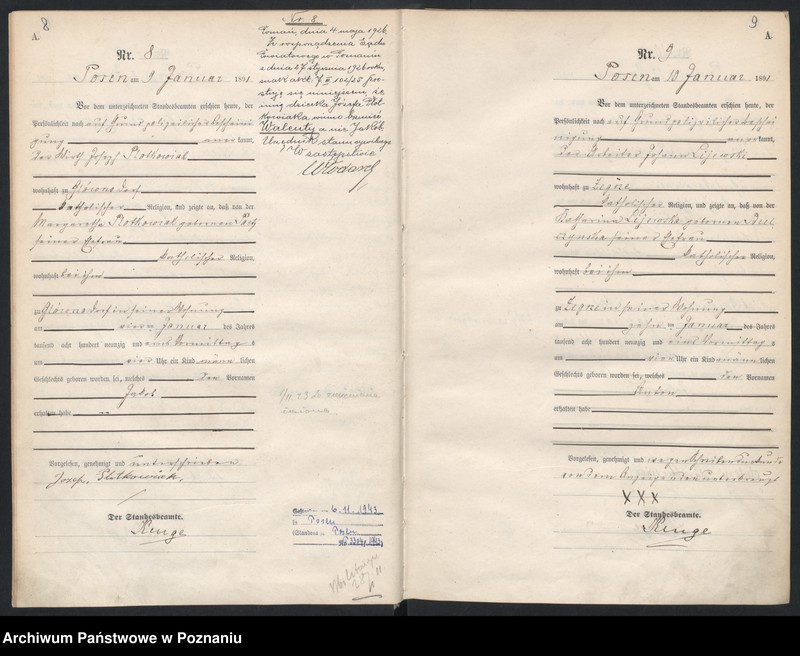 8
A.
Nr. 8
Posen am 9 Januar 1891
Vor dem unterzeichneten Standesbeamten erschien heute, der
Persönlichkeit nach auf Grund polizeilicher Bescheini
gung anerkannt,
der Wirth Josef Plotkowiak
wohnhaft zu Glówno Dorf
katholischer Religion, und zeigte an, daß von der
Margaretha Plotkowiak geborenen
seiner Ehefrau
katholischer Religion,
wohnhaft bei ihm
zu Glówno Dorf in seiner Wohnung
am vier ten Januar des Jahres
tausend acht hundert neunzig und eins Vormittag s
um vier Uhr ein Kind männ lichen
Geschlechts geboren worden sei, welches den Vornamen
Jakob
erhalten habe
Vorgelesen, genehmigt und unterschrieben
Josef Plotkowiak.
Der Standesbeamte.
Runge
Nr. 8
Poznań, dnia 4 maja 1926
Z rozporządzenia Sądu
Powiatowego w Poznaniu
z dnia 27 stycznia 1926 roku,
prostuje się niniejszem, że
imię dziecka Józefa Plot-
kowiaka winno brzmieć
Walenty a nie Jakób.
Urzędnik stanu cywilnego
W zastępstwie
6. 11. 1943
Posen
(Standesa
Posen
9
A.
Nr. 9
Posen am 10 Januar 1891
Vor dem unterzeichneten Standesbeamten erschien heute, der
Persönlichkeit nach auf Grund polizeilicher Beschei
nigung anerkannt,
der Arbeiter Johann Lijewski
wohnhaft zu Zegrze
katholischer Religion, und zeigte an, daß von der
Katharina Lijewska geborenen
seiner Ehefrau
katholischer Religion,
wohnhaft bei ihm
zu Zegrze in seiner Wohnung
am zehn ten Januar des Jahres
tausend acht hundert neunzig und eins Vormittag s
um vier Uhr ein Kind männ lichen
Geschlechts geboren worden sei, welches den Vornamen
Anton
erhalten habe
Vorgelesen, genehmigt und wegen Schreibensunkunde
von dem Anzeigenden unterkreuzt
XXX
Der Standesbeamte.
Runge
Archiwum Państwowe w Poznaniu